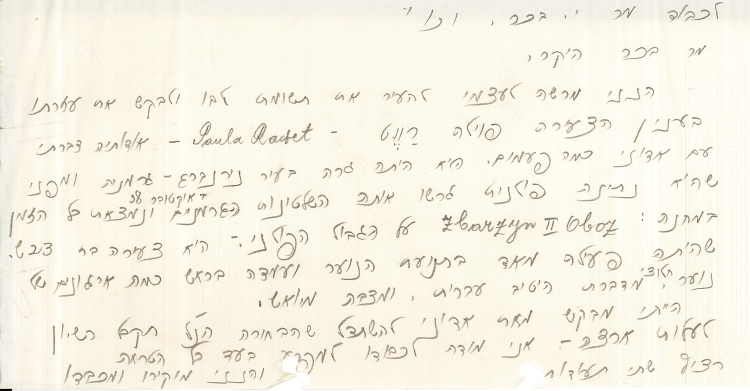 לכבוד מר י. בכר, וכו'
מר בכר היקר,
הנני מרשה לעצמי להעיר את תשומת לבו ולבקש את עזרתו
בענין הצעירה פוילה רַוֶט - Paula Ravet - אודותיה דברתי
עם אדוני כמה פעמים. היא היתה גרה בעיר נירנברג - גרמניה ומפני
שהיא נתינה פולנית גרשו אותה השלטונות הגרמנים באוקטובר 38 ונמצאת כל הזמן
במחנה: Zbonszyn II Oboz על הגבול הפולני. - היא צעירה בת
שהיתה פעילה מאד בתנועת הנוער ועמדה בראש כמה ארגונים של
נוער חלוצי, מדברת היטיב עברית, ומצבה מיואש.
הייתי מבקש מאת אדוני להשתדל שהבחורה הנ"ל תקבל רשיון
לעלות ארצה - אני מודה לכבודו למפרע בעד כל הטרחה
רצוף שתי תעודות והנני מוקירו ומכבדו